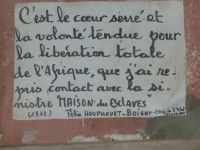 C'est le cœur serré et
la volonté tendue pour
la libération totale
de l'Afrique, que j'ai re-
pris contact avec la "si-
nistre MAISON des ESCLAVES
(1973) Félix HOUPHOUET-BOIGNY